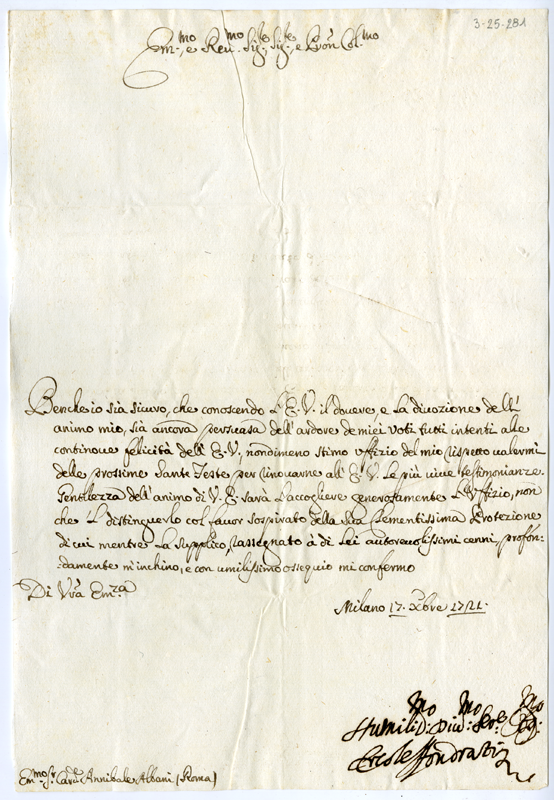 3-25-281
Em.mo, e Reu.mo Sig.re Sig.re, e Pron Col.mo
Benche io sia sicuro, che conoscendo L'E.V. il douere e la diuozione dell'
animo mio, sia ancora persuasa dell'ardore de miei voti tutti intenti alle
continoue felicità dell'E.V., nondimeno stimo uffizio del mio rispetto ualermi
delle prossime Sante Feste per rinouarne all'E.V. Le più uiue testimonianze.
Gentilezza dell'animo di V.E. sarà L'accogliere generosamente L'Uffizio, non
che 'L distinguerlo col fauor sospirato della Sua Clementissima Protezione
di cui mentre La supplico, rassegnato à di Lei autoreuolissimi cenni, profon-
damente m'inchino, e con umilissimo ossequio mi confermo
Di Vrã Em.za
Milano 17. Xbre 1721.
Humil.mo Diu.mo Ser.e
Ercole Sfondrati
Em.mo Sr. Card. Annibale Albani (Roma)